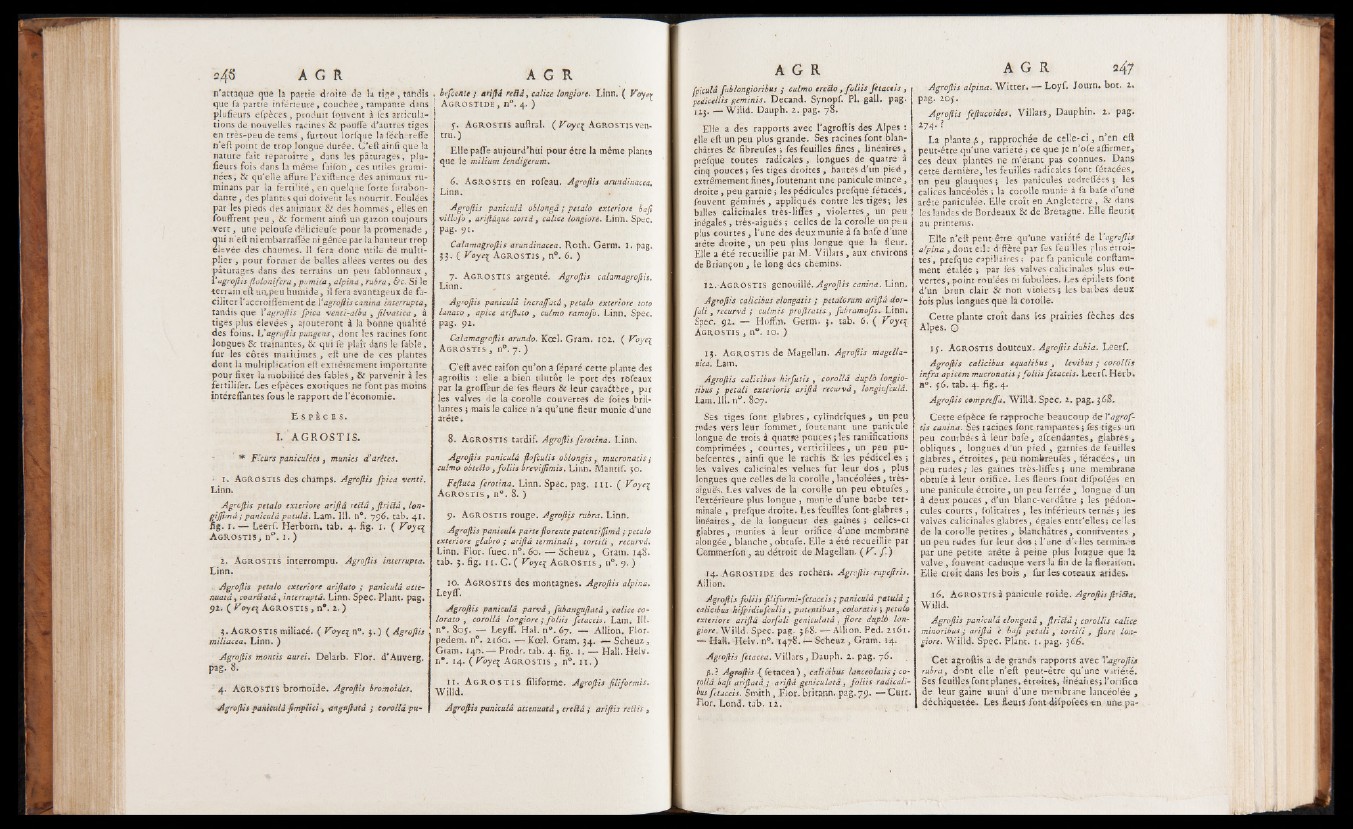 248 A G R
n'attaque que la partie droite de la tige, tandis
que sa partie inférieure, couchée, rampante dans
plusieurs espèces, produit souvent à ses articula-
tions de nouvelles racines & pousse d'autres tiges
en très-peu de tems, surtout lorsque la sécheresse
n'est point de trop longue durée. C'est ainsi que la
nature fait reparoître, dans les pâturages, plu-
sieurs fois dans la même saison, ces utiles grami-
nées, & qu'elle assure l'existence des animaux ru-
minans par la fertilité, en quelque sorte surabon-
dante, des plantes qui doivent les nourrir. Foulées
par les pieds des animaux & des hommes, elles en
souffrent peu, & forment ainsi un gazon toujours
vert, une pelouse délicieuse pour la promenade,
qui n'est ni embarrassée ni gênée par la hauteur trop
élevée des chaumes. Il sera donc utile de multi-
plier, pour former de belles allées vertes ou des
pâturages dans des terrains un peu sablonneux,
l'agrostis stolonifera, pumila, alpina, rubra, &c. Si le
terrain est un peu humide, il sera avantageux de fa-
ciliter l'accroissement de l'agrostis canina interrupta,
tandis que l'agrostis spica venti-alba, silvatica, à
tiges plus élevées, ajouteront à la bonne qualité
des foins. L'agrostis pungens, dont les racines sont
longues & traînantes, & qui se plaît dans le sable,
sur les côtes maritimes, est une de ces plantes
dont la multiplication est extrêmement importante
pour fixer la mobilité des sables, & parvenir à les
fertiliser. Les espèces exotiques ne sont pas moins
intéressantes sous le rapport de l'économie.
ESPÈCES.
I. AGROSTIS.
* Fleurs paniculées, munies d'arêtes.
1. AGROSTIS des champs. Agrostis spica venti.
Linn.
Agrostis petalo exteriore aristâ rectâ, strictâ, lon-
gissimâ; paniculâ patulâ. Lam. Ill. n°. 796. tab. 41.
fig. 1. — Leers. Herborn. tab. 4. fig. 1. (Voyez
AGROSTIS, n°. 1.)
2. AGROSTIS interrompu. Agrostis interrupta.
Linn.
Agrostis petalo exteriore aristato; paniculâ atte-
nuatâ, coarctatâ, interruptâ. Linn. Spec. Plant. pag.
92. (Voyez AGROSTIS, n°. 2.)
3. AGROSTIS miliacé. (Voyez n°. 3.) (Agrostis
miliacea. Linn.)
Agrostis montis aurei. Delarb. Flor. d'Auverg.
pag. 8.
4. AGROSTIS bromoïde. Agrostis bromoides.
Agrostis paniculâ simplici, angustatâ; corollâ pu-
A G R
bescente; aristâ rectâ, calice longiore. Linn. (Voyez
AGROSTIDE, n°. 4.)
5. AGROSTIS austral. (Voyez AGROSTIS ven-
tru.)
Elle passe aujourd'hui pour être la même plante
que le milium lendigerum.
6. AGROSTIS en roseau. Agrostis arundinacea.
Linn.
Agrostis paniculâ oblongâ; petalo exteriore basi
villoso, aristâque tortâ, calice longiore. Linn. Spec.
pag. 91.
Calamagrostis arundinacea. Roth. Germ. 1. pag.
33. (Voyez AGROSTIS, n°. 6.)
7. AGROSTIS argenté. Agrostis calamagrostis.
Linn.
Agrostis paniculâ incrassatâ, petalo exteriore toto
lanato, apice aristato, culmo ramoso. Linn. Spec.
pag. 92.
Calamagrostis arundo. Kœl. Gram. 102. (Voyez
AGROSTIS, n°. 7.)
C'est avec raison qu'on a séparé cette plante des
agrostis: elle a bien plutôt le port des roseaux
par la grosseur de ses fleurs & leur caractère, par
les valves de la corolle couvertes de soies bril-
lantes; mais le calice n'a qu'une fleur munie d'une
arête.
8. AGROSTIS tardif. Agrostis serotina. Linn.
Agrostis paniculâ flosculis oblongis, mucronatis;
culmo obtecto, foliis brevissimis. Linn. Mantiss. 30.
Festuca serotina. Linn. Spec. pag. 111. (Voyez
AGROSTIS, n°. 8.)
9. AGROSTIS rouge. Agrostis rubra. Linn.
Agrostis paniculæ parte florente patentissimâ; petalo
exteriore glabro; aristâ terminali, tortili, recurvâ.
Linn. Flor. suec. n°. 60. — Scheuz, Gram. 148.
tab. 3. fig. 11. C. (Voyez AGROSTIS, n°. 9.)
10. AGROSTIS des montagnes. Agrostis alpina.
Leyss.
Agrostis paniculâ parvâ, subangustatâ, calice co-
lorato, corollâ longiore; foliis setaceis. Lam. Ill.
n°. 805. — Leyss. Hal. n°. 67. — Allion. Flor.
pedem. n°. 2160. — Kœl. Gram. 34. — Scheuz,
Gram. 140. — Prodr. tab. 4. fig. 1. — Hall. Helv.
n°. 14. (Voyez AGROSTIS, n°. 11.)
11. AGROSTIS filiforme. Agrostis filiformis.
Willd.
Agrostis paniculâ attenuatâ, erectâ; aristis rectis,
A G R
spiculâ sublongioribus; culmo erecto, foliis setaceis,
pedicellis geminis. Decand. Synops. Pl. gall. pag.
123. — Willd. Dauph. 2. pag. 78.
Elle a des rapports avec l'agrostis des Alpes:
elle est un peu plus grande. Ses racines sont blan-
châtres & fibreuses; ses feuilles fines, linéaires,
presque toutes radicales, longues de quatre à
cinq pouces; ses tiges droites, hautes d'un pied,
extrêmement fines, soutenant une panicule mince,
droite, peu garnie; les pédicules presque sétacés,
souvent géminés, appliqués contre les tiges; les
balles calicinales très-lisses, violettes, un peu
inégales, très-aiguës; celles de la corolle un peu
plus courtes, l'une des deux munie à sa base d'une
arête droite, un peu plus longue que la fleur.
Elle a été recueillie par M. Villars, aux environs
de Briançon, le long des chemins.
12. AGROSTIS genouillé. Agrostis canina. Linn.
Agrostis calicibus elongatis; petalorum aristâ dor-
sali, recurvâ; culmis prostratis, subramosis. Linn.
Spec. 92. — Hoffm. Germ. 3. tab. 6. (Voyez
AGROSTIS, n°. 10.)
13. AGROSTIS de Magellan. Agrostis magella-
nica. Lam.
Agrostis calicibus hirsutis, corollâ duplò longio-
ribus; petali exterioris aristâ recurvâ, longiusculâ.
Lam. Ill. n°. 807.
Ses tiges sont glabres, cylindriques, un peu
rudes vers leur sommet, soutenant une panicule
longue de trois à quatre pouces; les ramifications
comprimées, courtes, verticillées, un peu pu-
bescentes, ainsi que le rachis & les pédicelles;
les valves calicinales velues sur leur dos, plus
longues que celles de la corolle, lancéolées, très-
aiguës. Les valves de la corolle un peu obtuses,
l'extérieure plus longue, munie d'une barbe ter-
minale, presque droite. Les feuilles sont glabres,
linéaires, de la longueur des gaînes; celles-ci
glabres, munies à leur orifice d'une membrane
alongée, blanche, obtuse. Elle a été recueillie par
Commerson, au détroit de Magellan. (V. f.)
14. AGROSTIDE des rochers. Agrostis rupestris.
Allion.
Agrostis foliis filiformi-setaceis; paniculâ patulâ;
calicibus hispidiusculis, patentibus, coloratis; petalo
exteriore aristâ dorsali geniculatâ, flore duplò lon-
giore. Willd. Spec. pag. 368. — Allion. Ped. 2161.
— Hall. Helv. n°. 1478. — Scheuz, Gram. 14.
Agrostis setacea. Villars, Dauph. 2. pag. 76.
β.? Agrostis (setacea), calicibus lanceolatis; co-
rollâ basi aristatâ; aristâ geniculatâ, foliis radicali-
bus setaceis. Smith, Flor. britann. pag. 79. — Curt.
Flor. Lond. tab. 12.
A G R 247
Agrostis alpina. Witter. — Loys. Journ. bot. 2.
pag. 205.
Agrostis festucoides. Villars, Dauphin. 2. pag.
274.?
La plante β, rapprochée de celle-ci, n'en est
peut-être qu'une variété; ce que je n'ose affirmer,
ces deux plantes ne m'étant pas connues. Dans
cette dernière, les feuilles radicales sont sétacées,
un peu glauques; les panicules redressées; les
calices lancéolés; la corolle munie à sa base d'une
arête paniculée. Elle croît en Angleterre, & dans
les landes de Bordeaux & de Bretagne. Elle fleurit
au printems.
Elle n'est peut-être qu'une variété de l'agrostis
alpina, dont elle diffère par ses feuilles plus étroi-
tes, presque capillaires; par sa panicule constam-
ment étalée; par ses valves calicinales plus ou-
vertes, point rouées ni subulées. Les épillets sont
d'un brun clair & non violets; les barbes deux
fois plus longues que la corolle.
Cette plante croît dans les prairies sèches des
Alpes.
15. AGROSTIS douteux. Agrostis dubia. Leers.
Agrostis calicibus æqualibus, levibus; corollis
infra apicem mucronatis; foliis setaceis. Leers. Herb.
n°. 56. tab. 4. fig. 4.
Agrostis compressa. Willd. Spec. 2. pag. 368.
Cette espèce se rapproche beaucoup de l'agros-
tis canina. Ses racines sont rampantes; ses tiges un
peu courbées à leur base, ascendantes, glabres,
obliques, longues d'un pied, garnies de feuilles
glabres, étroites, peu nombreuses, sétacées, un
peu rudes; les gaînes très-lisses; une membrane
obtuse à leur orifice. Les fleurs sont disposées en
une panicule étroite, un peu serrée, longue d'un
à deux pouces, d'un blanc-verdâtre; les pédon-
cules courts, solitaires, les inférieurs ternés; les
valves calicinales glabres, égales entr'elles; celles
de la corolle petites, blanchâtres, conniventes,
un peu rudes sur leur dos; l'une d'elles terminée
par une petite arête à peine plus longue que la
valve, souvent caduque vers la fin de la floraison.
Elle croît dans les bois, sur les coteaux arides.
16. AGROSTIS à panicule roide. Agrostis stricta.
Willd.
Agrostis paniculâ elongatâ, strictâ; corollis calice
minoribus; aristâ è basi petali, tortili, flore lon-
giore. Willd. Spec. Plant. 1. pag. 366.
Cet agrostis a de grands rapports avec l'agrostis
rubra, dont elle n'est peut-être qu'une variété.
Ses feuilles sont planes, étroites, linéaires; l'orifice
de leur gaîne muni d'une membrane lancéolée,
déchiquetée. Les fleurs sont disposées en une pa-